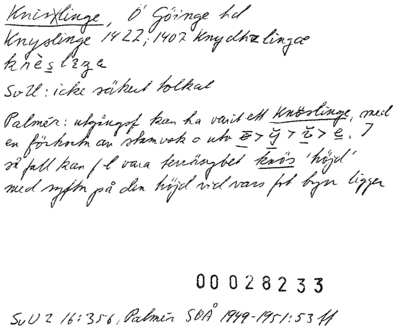 Knislinge, Ö Göinge hd
Knyslinge 1422; 1402 Knydhzlingæ
SvU: icke säkert tolkat
Palmér: utgångsf kan ha varit ett Knöslinge, med
en förkortn av stamvok o utv ö > y > i > e. I
så fall kan f l vara terrängbet knös 'höjd'
med syftn på den höjd vid vars fot byn ligger
00028233
SvU 2 16:356, Palmér SOÅ 1949-1951:53 ff